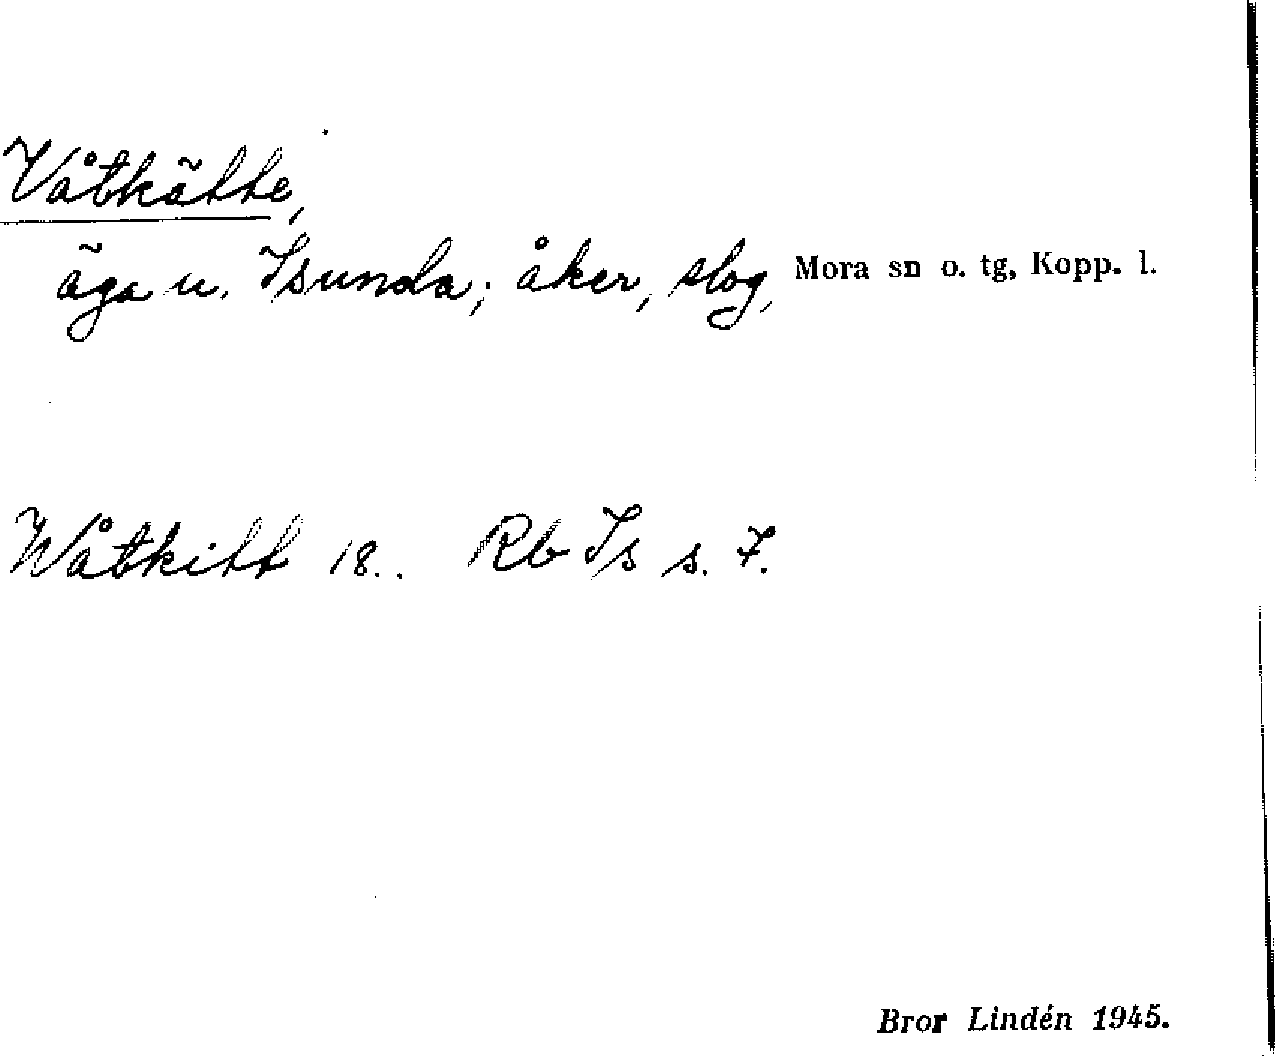 Våtkätte,
äga u. Isunda; åker, slog, Mora sn o. tg, Kopp. l.
Wåtkitt 18.. Rb Is s. 7.
Bror Lindén 1945.